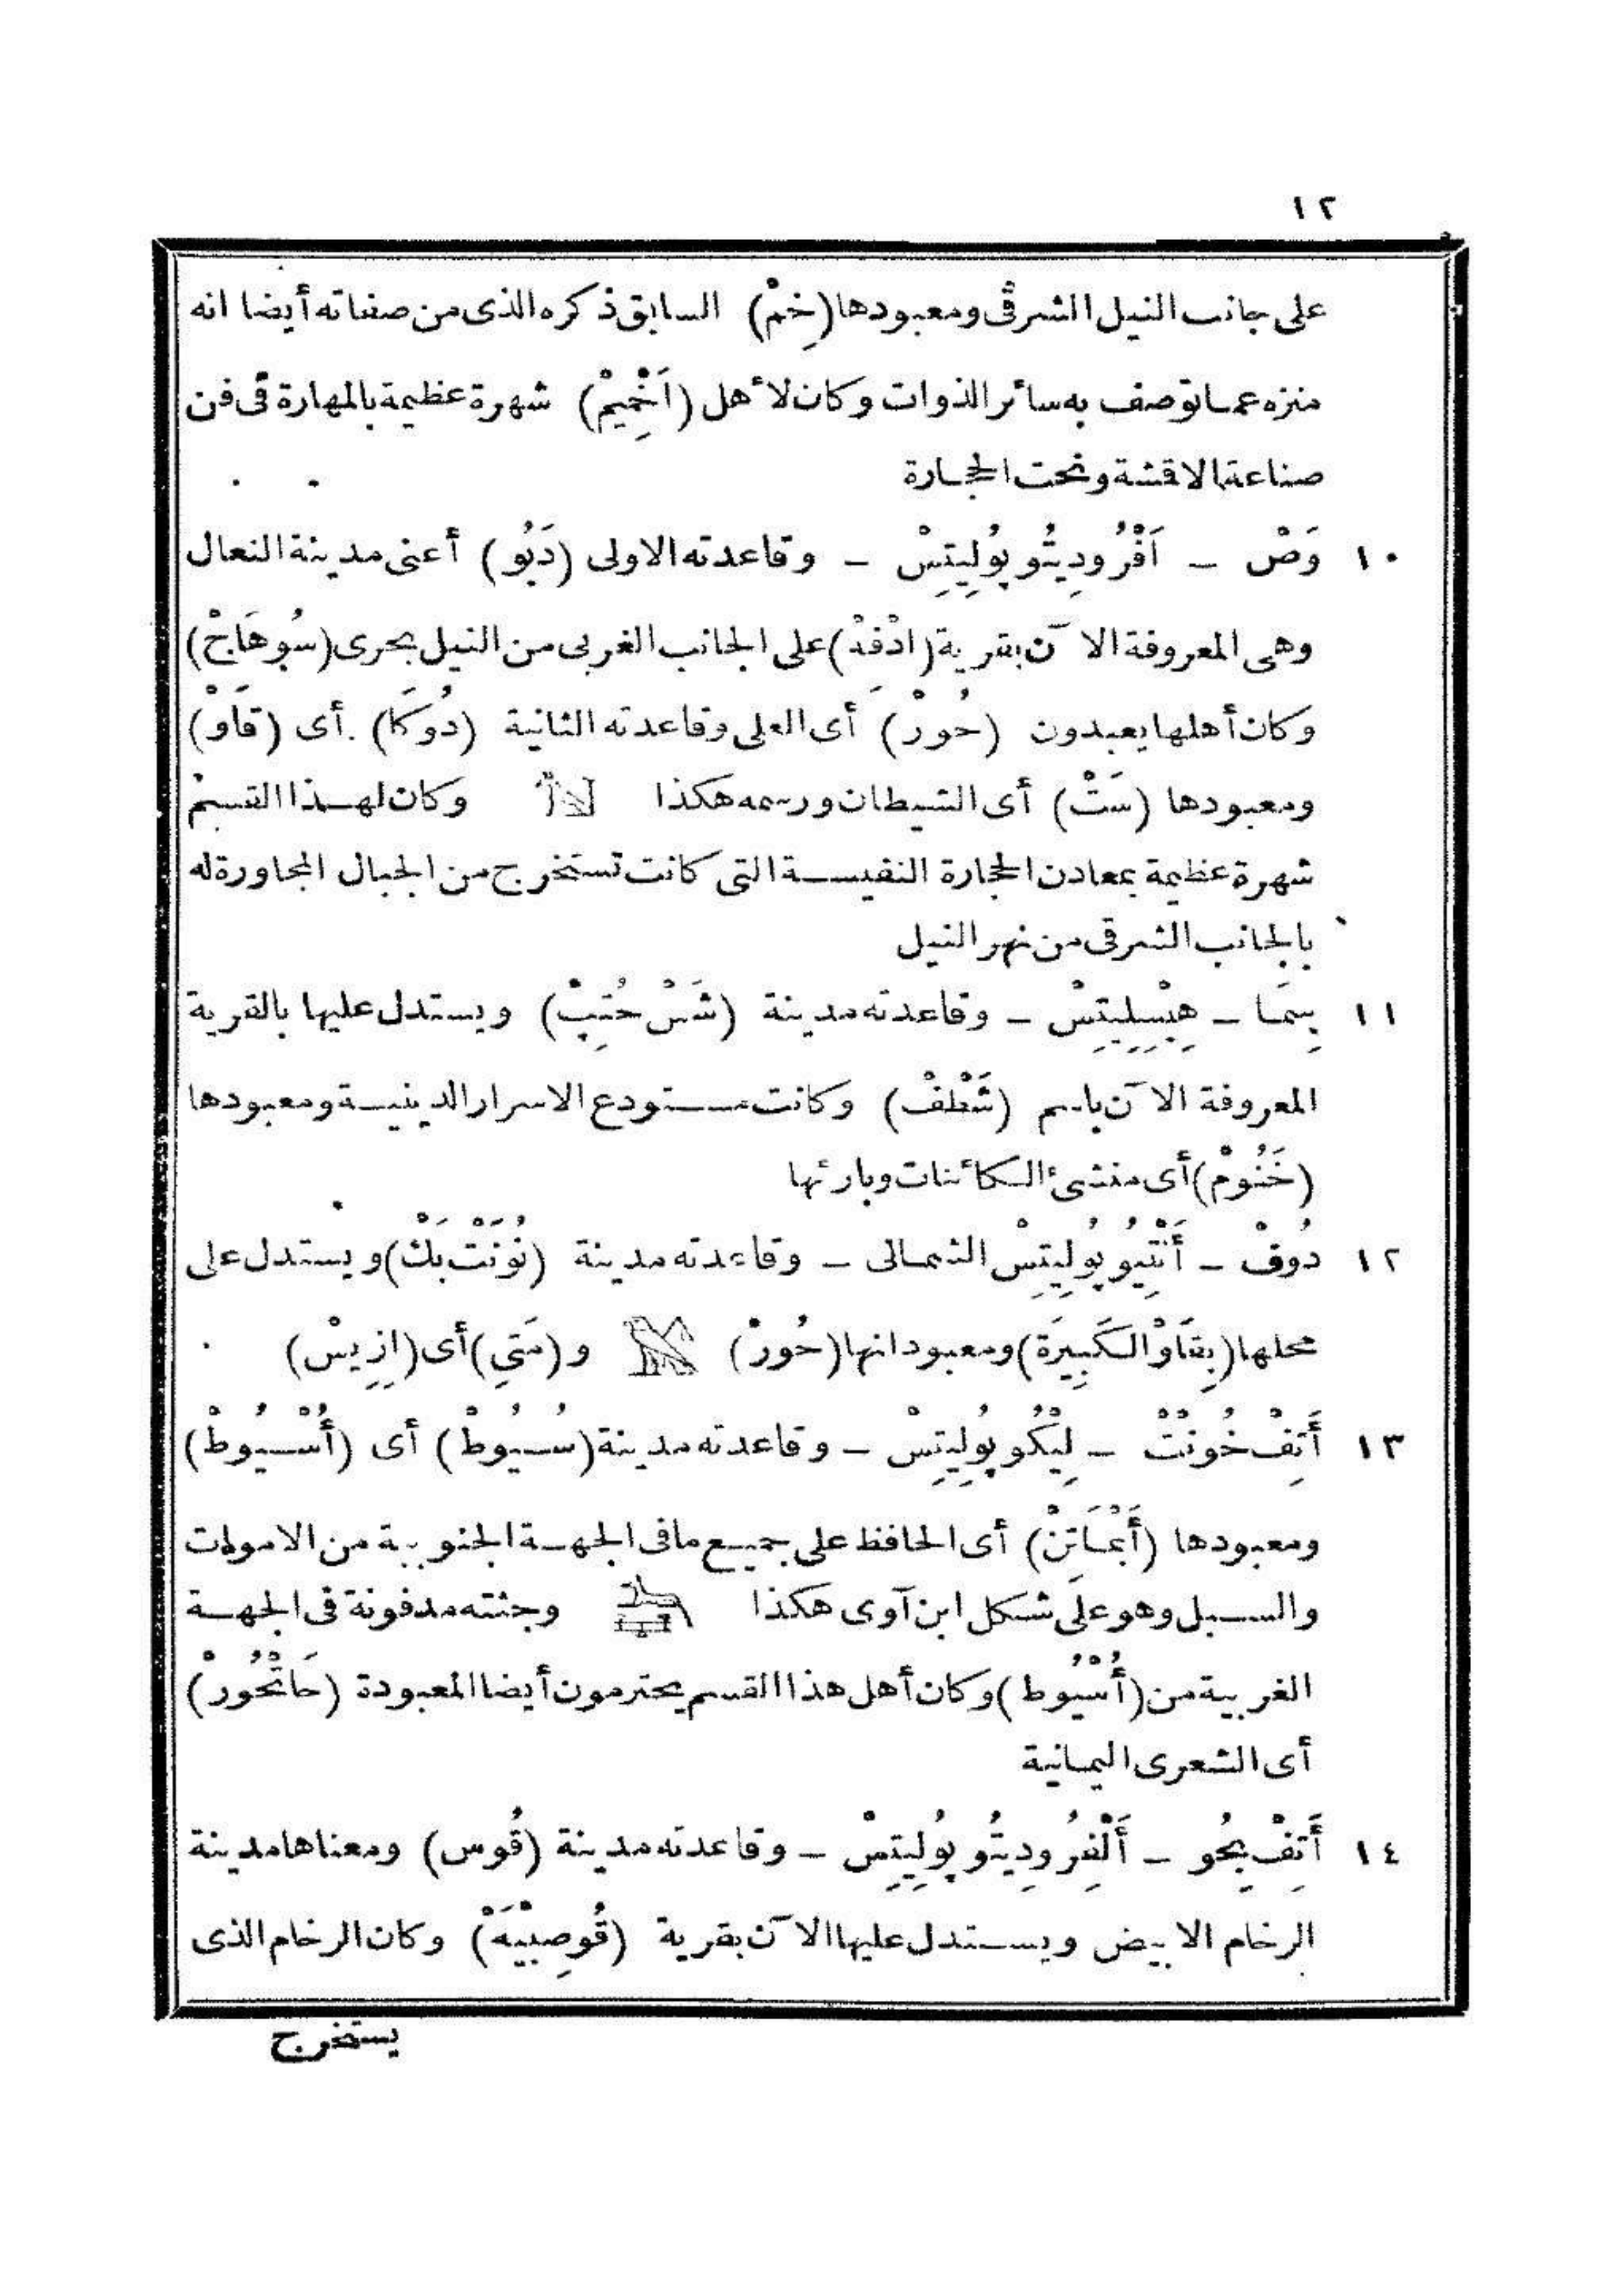 ١٢
على جانب النيل الشرقى ومعبودها (خِمْ) السابق ذكره الذى من صفاته أيضا انه
منزه عما توصف به سائر الذوات وكان لأهل (اَخْمِيمْ) شهرة عظيمة بالمهارة فى فن
صناعة الاقشة ونحت الحجارة
١٠ وَصْ – اَفْرُودِيتُو پُولِيتِسْ – وقاعدته الاولى (دَبُو) أعنى مدينة النعال
وهى المعروفة الآن بقرية (ادْفَهْ) على الجانب الغربى من النيل بحرى (سُوهَاجْ)
وكان أهلها يعبدون (حُورْ) أى العلى وقاعدته الثانية (دُوكَا) أى (قَاوْ)
ومعبودها (سَتْ) أى الشيطان ورسمه هكذا وكان لهذا القسم
شهرة عظيمة بمعادن الحجارة النفيسة التى كانت تستخرج من الجبال المجاورة له
بالجانب الشرقى من نهر النيل
١١ بِسمَا – هِبْسِلِيتِسْ – وقاعدته مدينة (شَسْ حُتِبْ) ويستدل عليها بالقرية
المعروفة الآن باسم (شَطْفْ) وكانت مستودع الاسرار الدينية ومعبودها
(خَنُومْ) أى منشئ الكائنات وبارئها
١٢ دُوفْ – أَنْتِيُو پُولِيتِسْ الشمالى – وقاعدته مدينة (نُونَتْ بَكْ) ويستدل على
محلها (بِقَاوْ الكَبِيرَة) ومعبوداتها (حُورْ) و (مَتِى) أى (اِزِيسْ)
١٣ أَتِفْ خُونْتْ – لِيْكُو پُولِيتِسْ – وقاعدته مدينة (سُيُوطْ) أى (أُسْيُوطْ)
ومعبودها (أَنْمَاتِنْ) أى الحافظ على جميع مافى الجهة الجنوبية من الاموات
والسبل وهو على شكل ابن آوى هكذا وجثته مدفونة فى الجهة
الغربية من (أُسْيُوط) وكان أهل هذا القسم يحترمون أيضا المعبودة (حَاتْحُورْ)
أى الشعرى اليمانية
١٤ أَتِفْ بِحُو – أَلْفِرُودِيتُو پُولِيتِسْ – وقاعدته مدينة (قُوس) ومعناها مدينة
الرخام الابيض ويستدل عليها الآن بقرية (قُوصِيَّهْ) وكان الرخام الذى
يستخرج